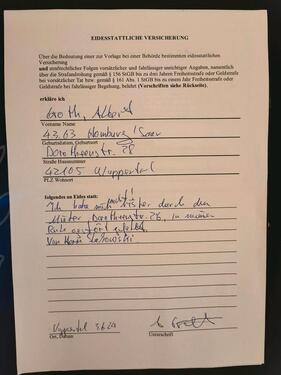 EIDESSTATTLICHE VERSICHERUNG
Über die Bedeutung einer zur Vorlage bei einer Behörde bestimmten eidesstattlichen
Versicherung
und strafrechtlicher Folgen vorsätzlicher und fahrlässiger unrichtiger Angaben, namentlich
über die Strafandrohung gemäß § 156 StGB bis zu drei Jahren Freiheitsstrafe oder Geldstrafe
bei vorsätzlicher Tat bzw. gemäß § 161 Abs. 1 StGB bis zu einem Jahr Freiheitsstrafe oder
Geldstrafe bei fahrlässiger Begehung, belehrt (Vorschriften siehe Rückseite).
erkläre ich
Groth, Albert
Vorname Name
43.63 Homburg Saar
Geburtsdatum, Geburtsort
Dorotheenstr. 28
Straße Hausnummer
42105 Wuppertal
PLZ Wohnort
Folgendes an Eides statt:
Ich habe mich nicht durch den
Mieter Dorotheenstr. 28, in meiner
Ruhe gestört gefühlt.
Von Herrn
Wuppertal 3.6.24
Ort, Datum
Unterschrift